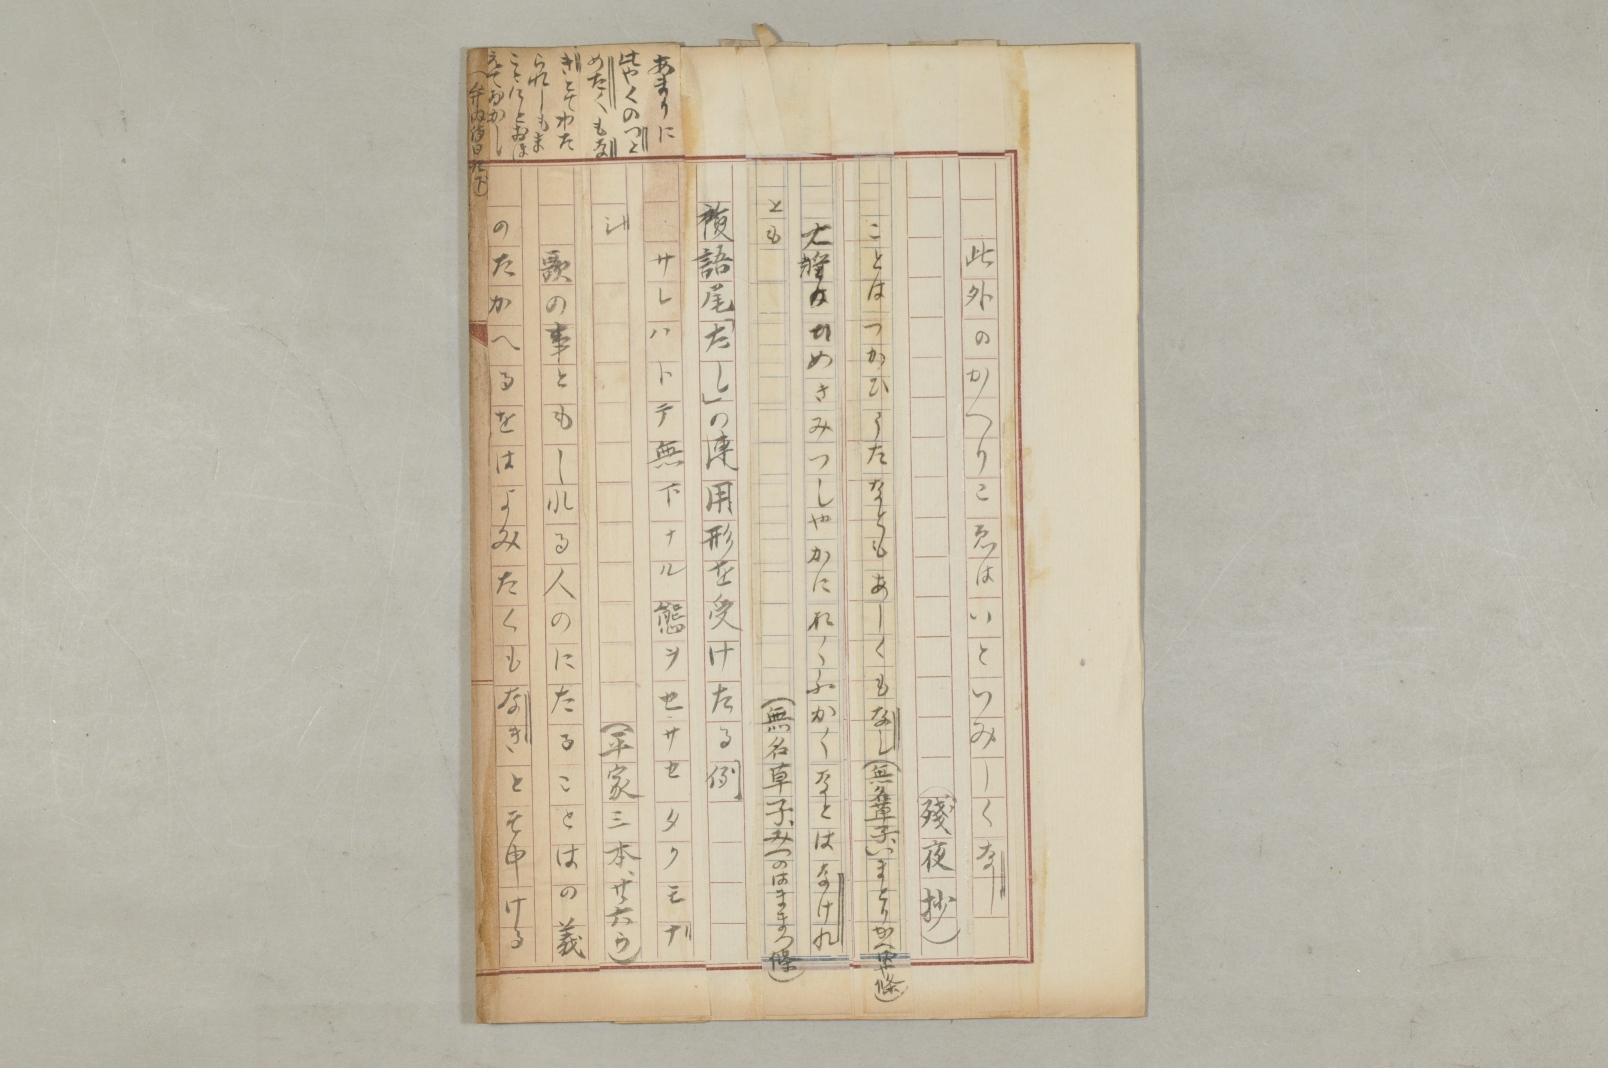 此外のかへりこゑはいといみしくなし
(殘夜抄)
ことはつかひうたなともあしくもなし(無名草子、いまとりかへはや條)
大將のなめさみつしやかにれうふかくなとはなけれ
とも
(無名草子、みつのはままつ條)
複語尾「たし」の連用形を受けたる例
サレハトテ無下ナル態ヲセサセタクモナ
シ
(平家三本、廿六ウ)
歌の事ともしれる人のにたることはの義
のたかへるをはよみたくもなきとそ申ける
あまりに
はやくのつと
めたくもな
きとてわた
られしもま
ことにとおほ
えてをかし
(弁内侍日記下)